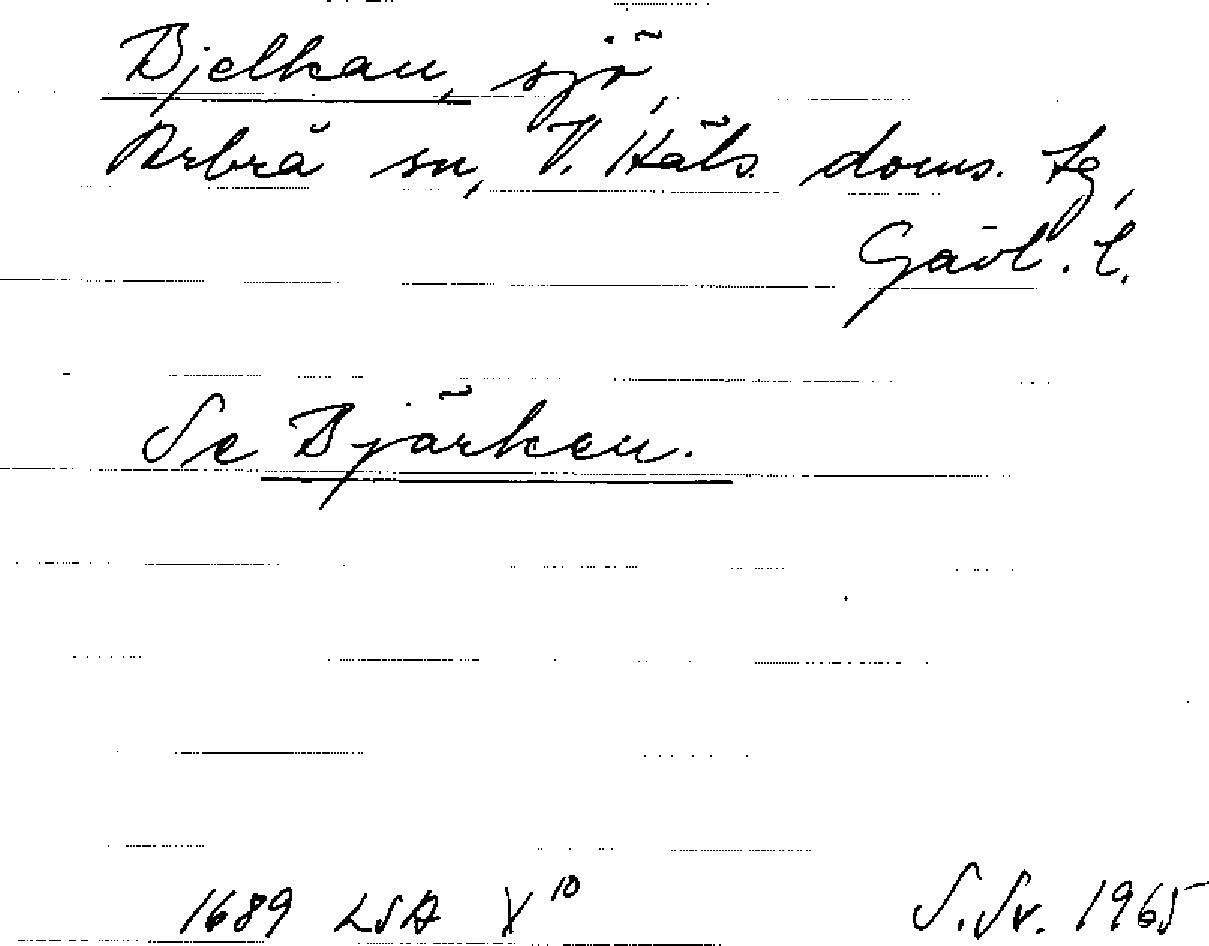 Bjelkan, sjö,
Arbrå sn, V. Häls. doms. tg,
Gävl. l.
Se Björken.
1689 LSA X¹⁰ S.Sv. 1965